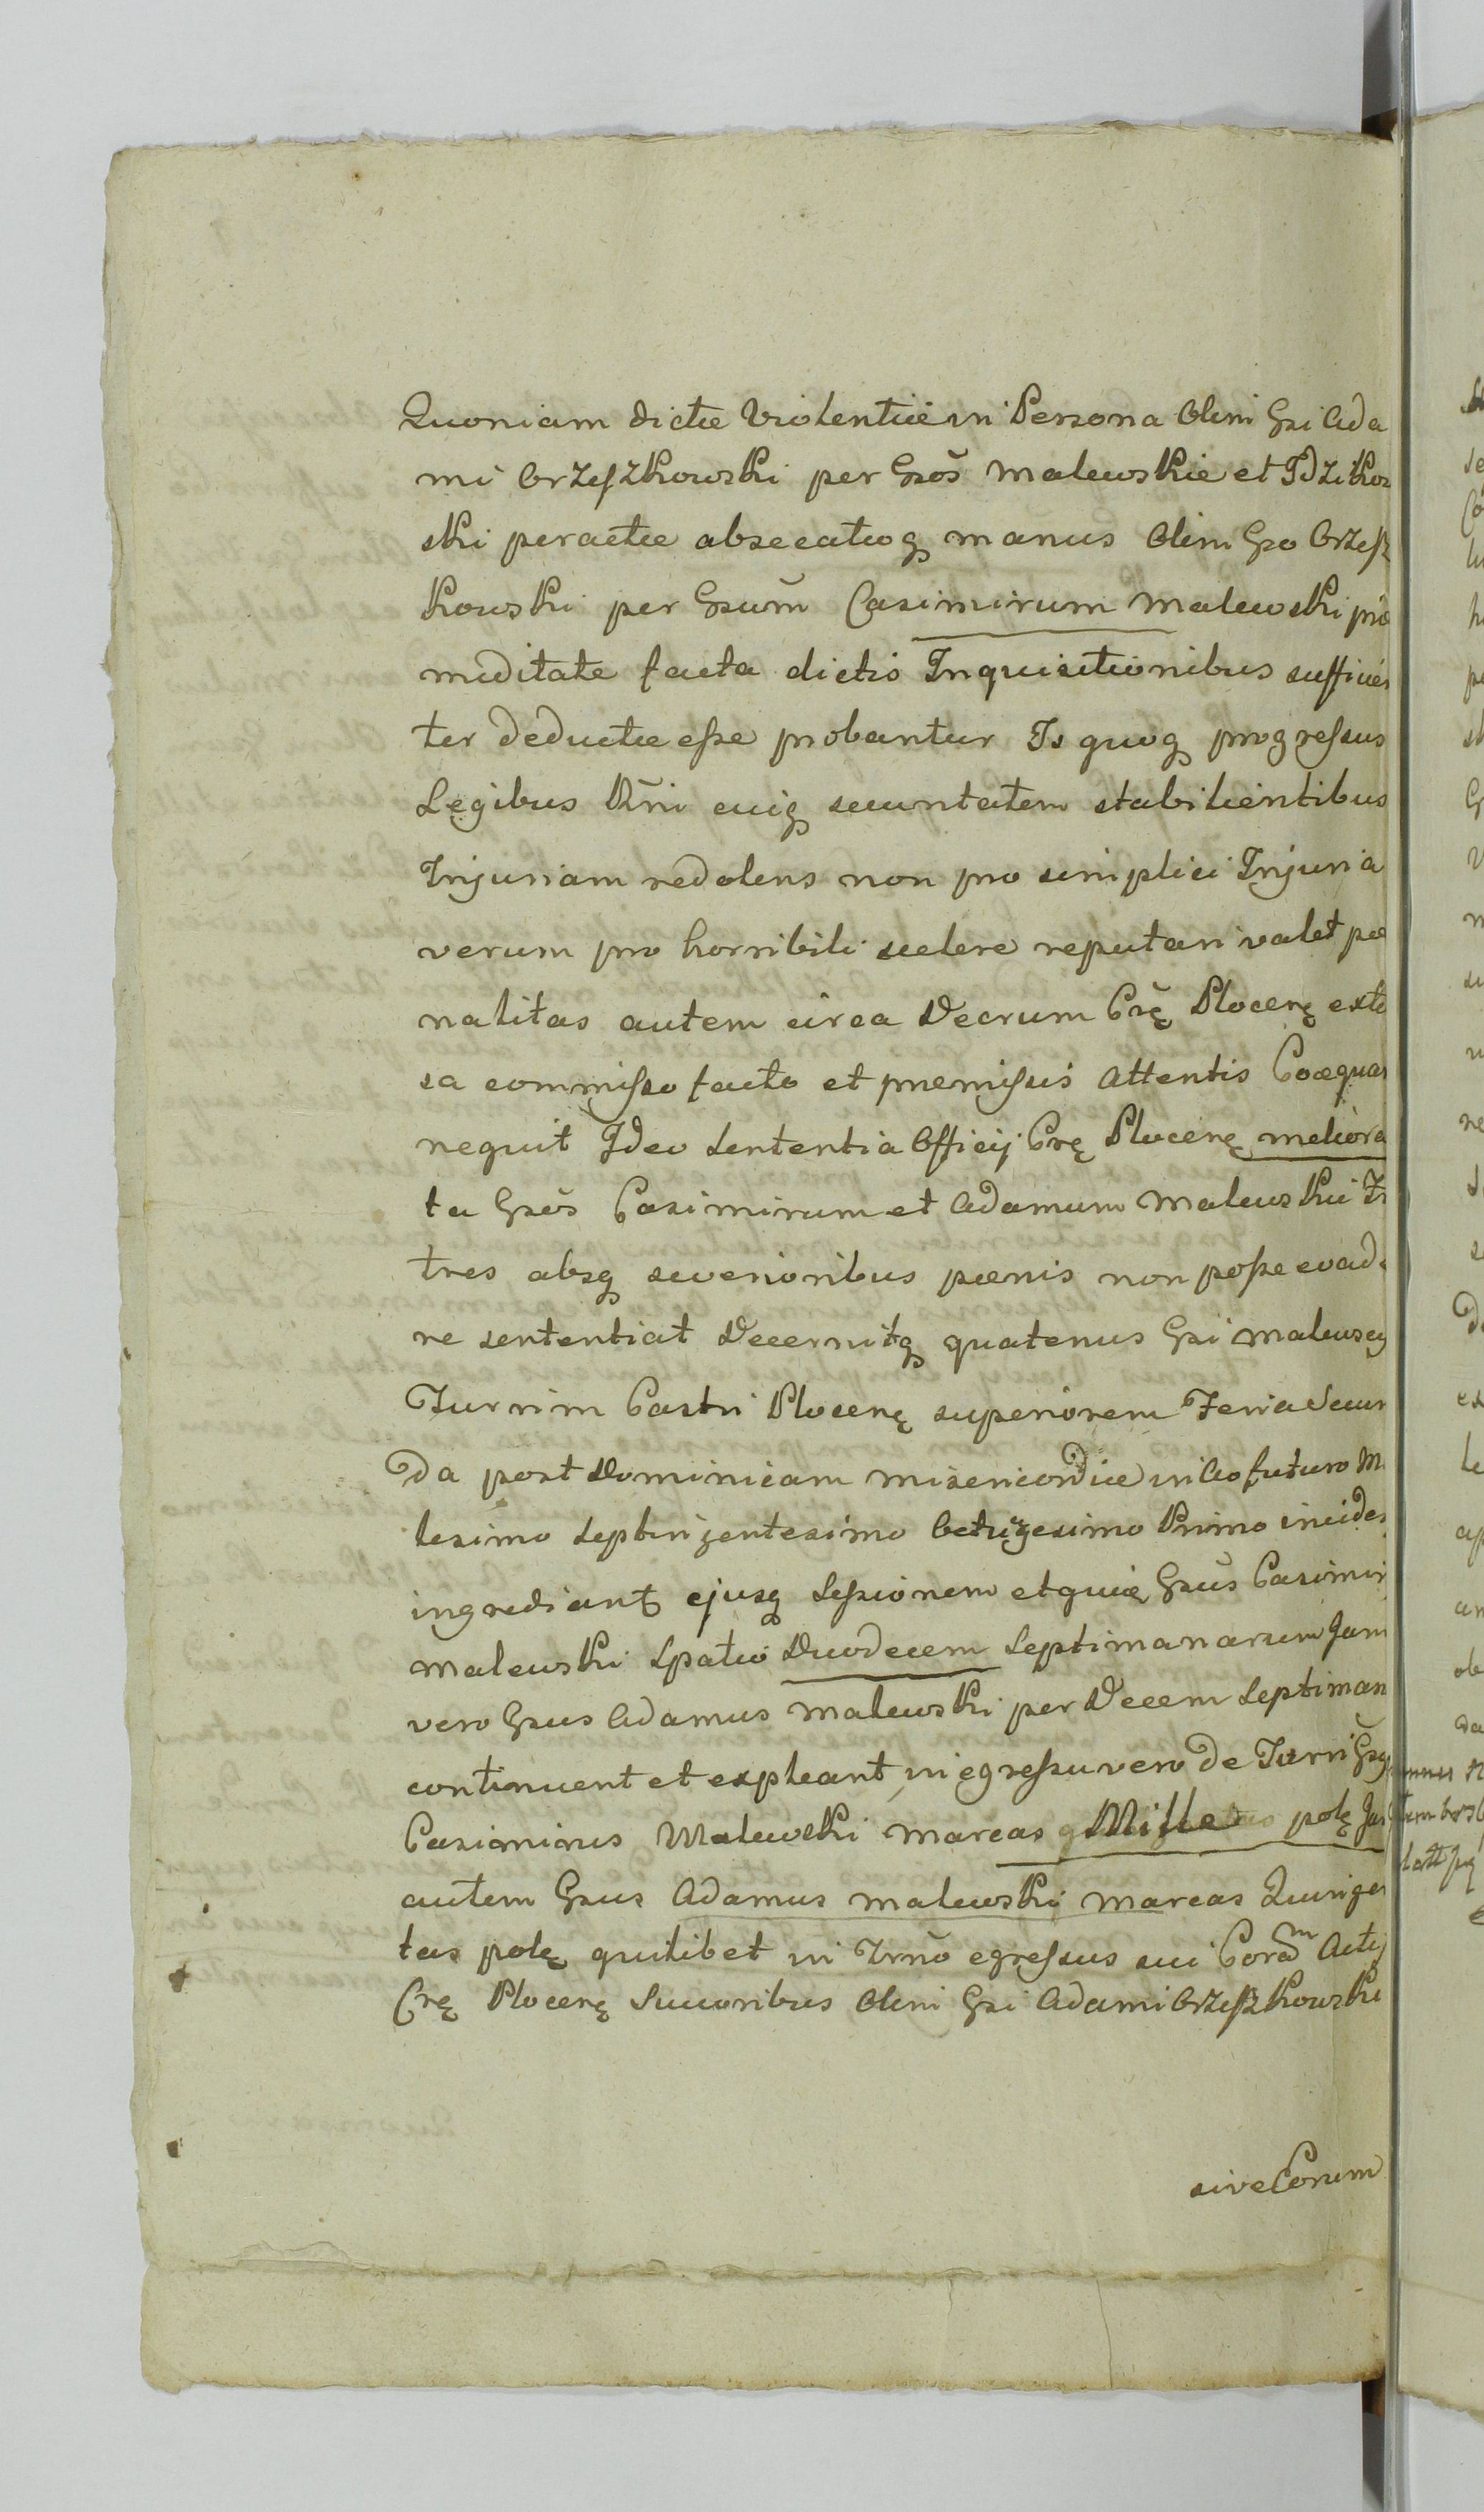 Quoniam dictæ Violentiæ in Persona Olim Gsi Ada
mi Orzeſzkowski per Gsos Malewskie et Idziko
ski peractæ absecatioq manus Olim Gso Orzeſz
kowski per Gsum Casimirum Malewski præ
meditate facta dictis Inquisitionibus sufficien
ter deductæ eſse probantur Is quoq progreſsus
Legibus Rni cuiq securitatem stabilientibus
Injuriam redolens non pro simplici Injuria
verum pro horribili scelere reputari valet pæ
nalitas autem circa Decrum Crę Plocenę exte
sa commiſso facto et premiſsis Attentis Coæqua
nequit Ideo Sententia Officij Crę Plocenę meliora
ta Gsos Casimirum et Adamum Malewskie Fr
tres absq severioribus pænis non poſse evade
re sententiat Decernitq quatenus Gsi Malewscy
Turrim Castri Plocenę superiorem Feria Secun
da post Dominicam Misericordiæ in Ao futuro M
lesimo Septingentesimo Octuagesimo Primo inciden
ingrediant ejusq Seſsionem et quię Gsus Casimir
Malewski Spatio Duodecem Septimanarum Jam
vero Gsus Adamus Malewski per Decem Septiman
continuent et expleant, in egreſsu vero de Turri Gsy
Casimirus Malewski Marcas Mille polę Ja
autem Gsus Adamus Malewski Marcas Quingen
tas polę quilibet in Trno egreſsus sui Coram Actij
Crę Plocenę Succoribus Olim Gsi Adami Orzeſzkowski
sive Eorum